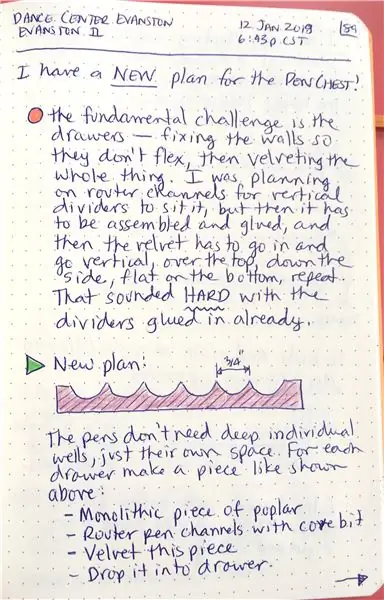 DANCE CENTER EVANSTON
EVANSTON IL
12 JAN 2019
6:43p CST
159
I have a NEW plan for the PEN CHEST!
the fundamental challenge is the
drawers — fixing the walls so
they don't flex, then velveting the
whole thing. I was planning
on router channels for vertical
dividers to sit it, but then it has
to be assembled and glued, and
then the velvet has to go in and
go vertical, over the top, down the
side, flat on the bottom, repeat.
That sounded HARD with the
dividers glued in already.
New plan:
3/4"
The pens don't need deep individual
wells, just their own space. For each
drawer make a piece like shown
above:
- Monolithic piece of poplar
- Router pen channels with cove bit
- Velvet this piece
- Drop it into drawer.